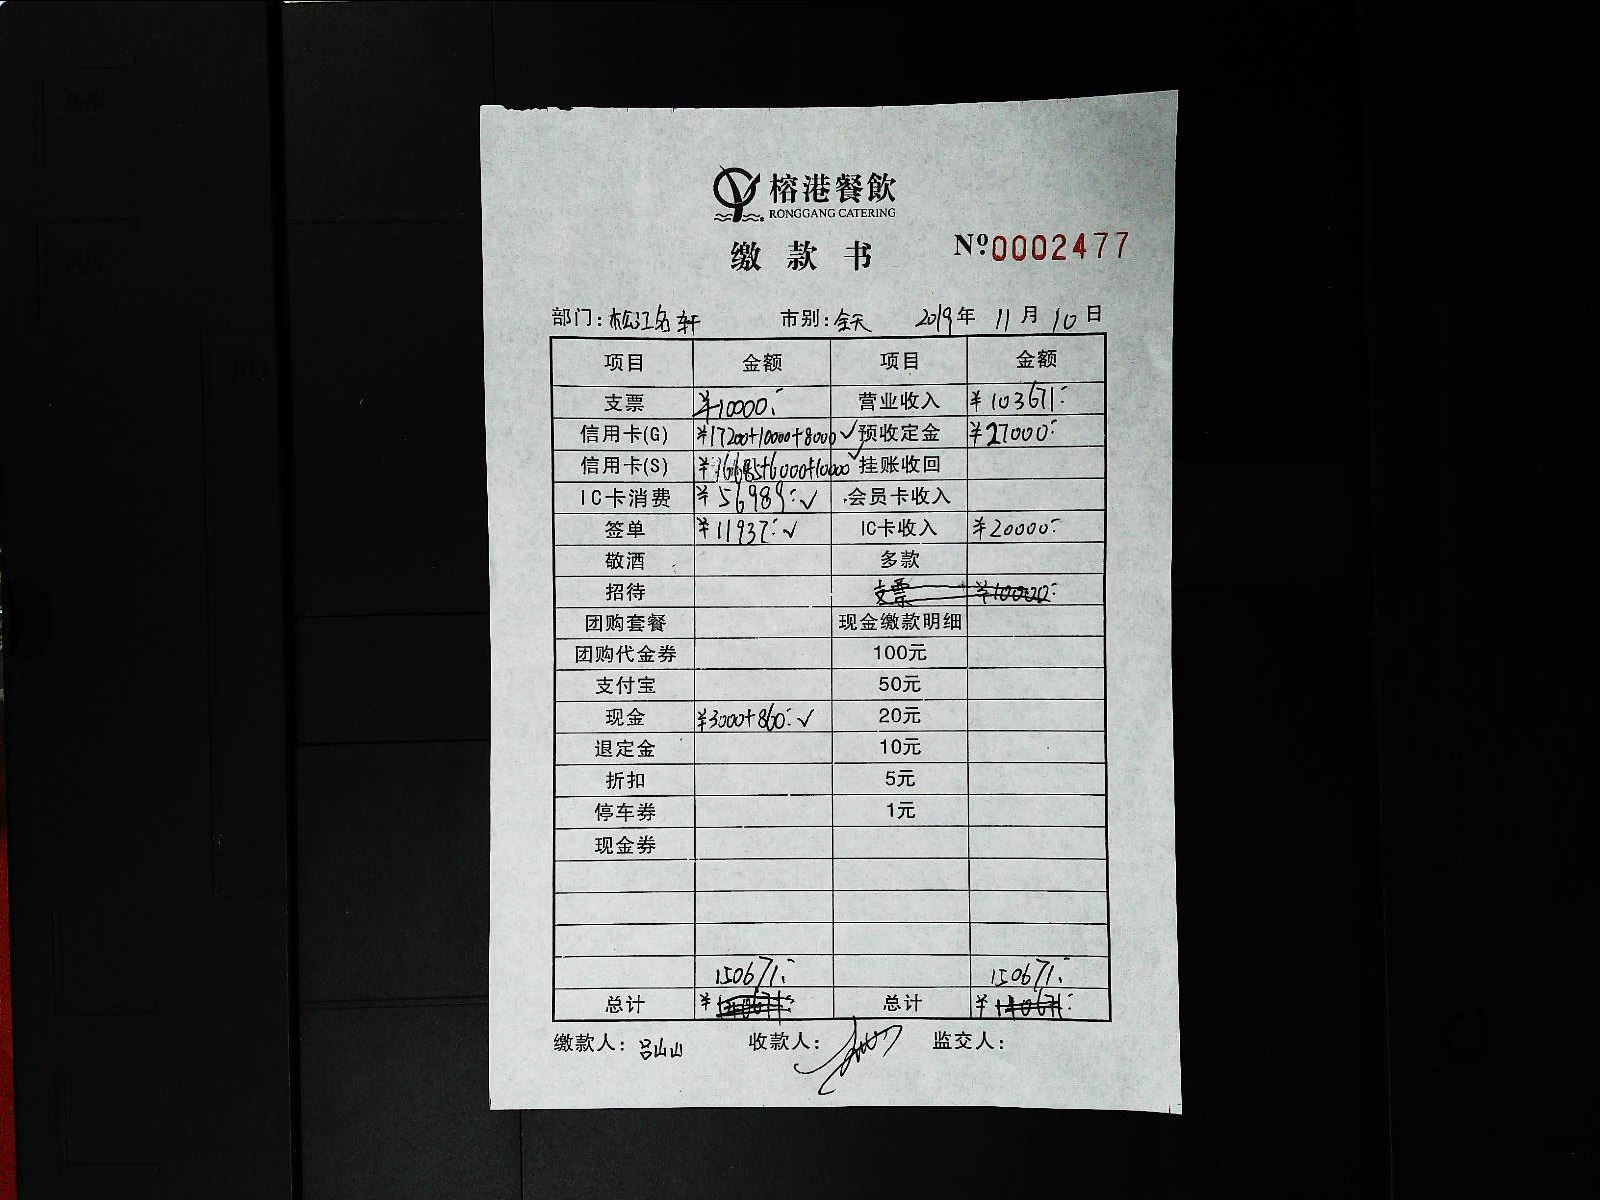 榕港餐飲
RONGGANG CATERING
缴款书 Nº.0002477
部门:松江名轩 市别:全天 2019年 11月 10日
项目 金额 项目 金额
支票 ¥10000:- 营业收入 ¥103671:-
信用卡(G) ¥17200+10000+8000 ✓ 预收定金 ¥27000:-
信用卡(S) ¥16685+6000+10000 ✓ 挂账收回
IC卡消费 ¥56989:- ✓ 会员卡收入
签单 ¥11937:- ✓ IC卡收入 ¥20000:-
敬酒 多款
招待 支票 ¥10000:-
团购套餐 现金缴款明细
团购代金券 100元
支付宝 50元
现金 ¥3000+860:- ✓ 20元
退定金 10元
折扣 5元
停车券 1元
现金券
150671:- 150671:-
总计 ¥ 总计 ¥
缴款人:吕山山 收款人: 监交人: